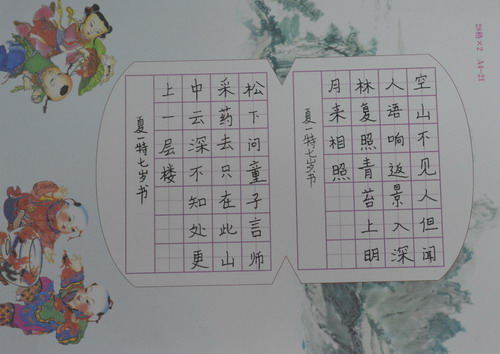 空山不见人但闻
人语响返景入深
林复照青苔上明
月来相照
夏一特七岁书
松下问童子言师
采药去只在此山
中云深不知处更
上一层楼
夏一特七岁书
28格×2 A4-21